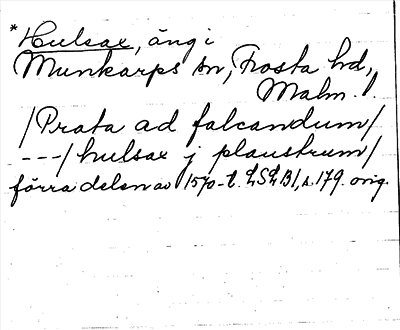 *Hulsax, äng i
Munkarps sn, Frosta hd,
Malm. l.
/Prata ad falcandum/
---/hulsax j plaustrum/
förra delen av 1570-t. LSLB1, s. 179. orig.